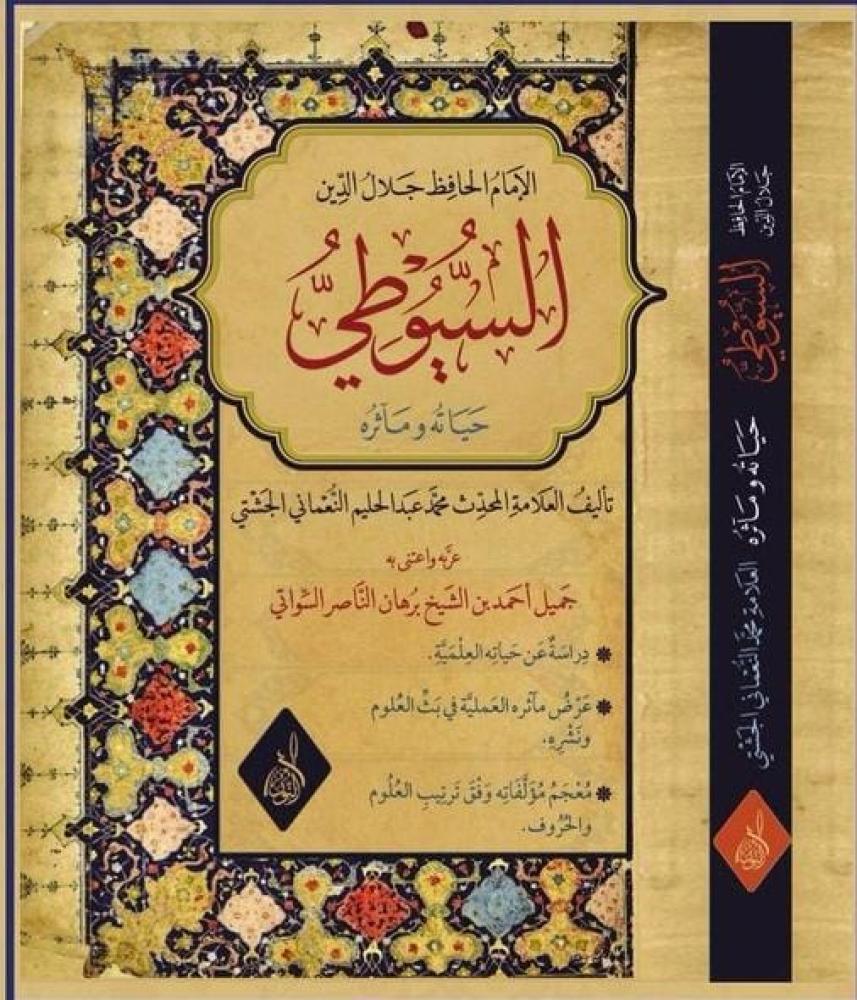 الإمَامُ الحَافِظ جَلَالُ الدِّين
السُّيُوْطِيُّ
حَيَاتُه وَمَآثِرُه
تأليفُ العَلَامَةِ المحَدِّث محمَّد عَبد الحَليم النُّعْماني الجَشْتي
عرَّبه واعتنى به
جَميل أحمَد بن الشَيخ بُرهَان النَّاصر السَّواتي
* دِرَاسَةٌ عَن حَيَاتِه العِلْمِيَّةِ.
* عَرْضُ مآثره العَمليَّة في بَثِّ العُلوم
وَنَشْرِه.
* مُعْجَمُ مُؤَلَّفَاتِه وَفْقَ تَرتِيبِ العُلُوم
والحُرُوف.
الإمَامُ الحَافِظ
جَلَالُ الدِّين
السُّيُوطِيُّ
حَيَاتُه وَمَآثِرُه
العَلامَة محمَّد النُّعْمَاني الجَشْتي